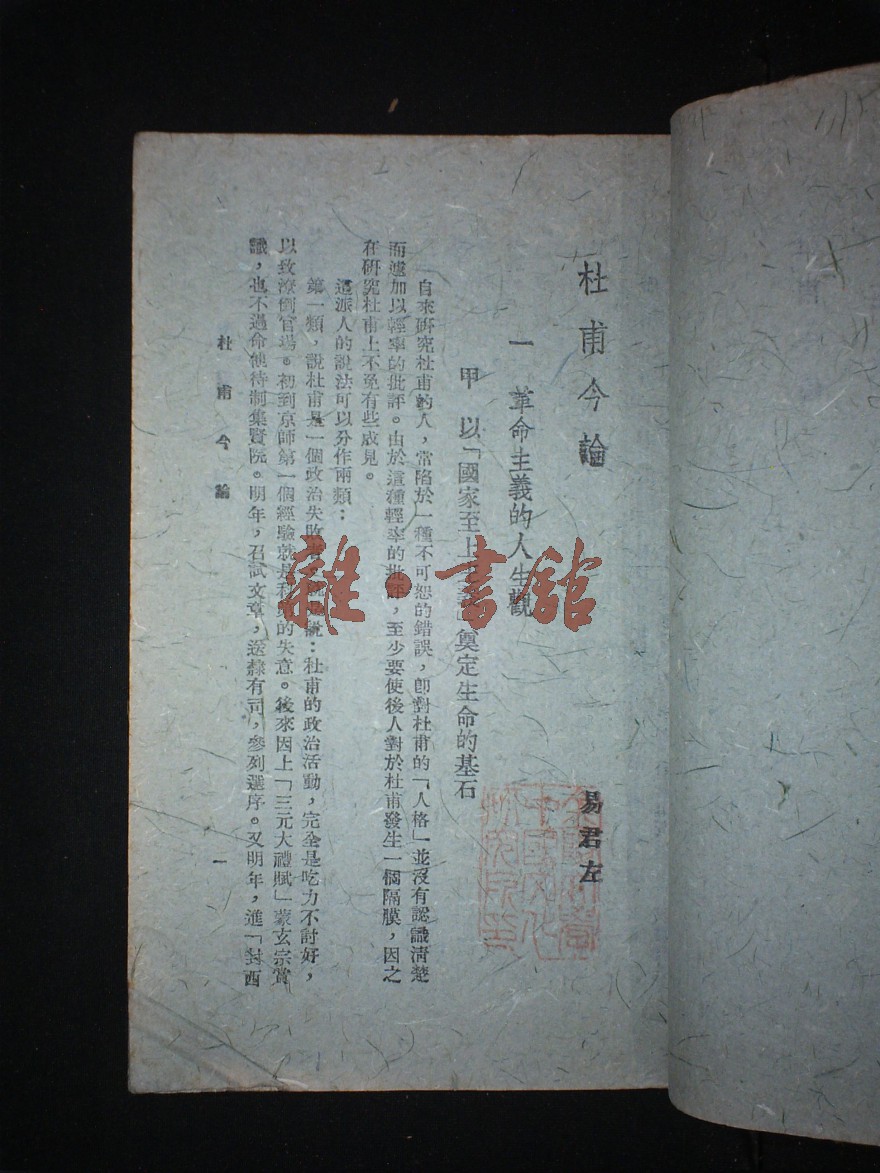 杜甫今論
易君左
一 革命主義的人生觀
甲 以「國家至上主義」奠定生命的基石
自來研究杜甫的人，常陷於一種不可恕的錯誤，卽對杜甫的「人格」並沒有認識淸楚
而遽加以輕率的批評。由於這種輕率的批評，至少要使後人對於杜甫發生一個隔膜，因之
在研究杜甫上不免有些成見。
這派人的說法可以分作兩類：
第一類，說杜甫是一個政治失敗者：杜甫的政治活動，完全是吃力不討好，
以致潦倒官場。初到京師第一個經驗就是科的失意。後來因上「三元大禮賦」蒙玄宗賞
識，也不過命他待制集賢院。明年，召試文章，送隸有司，參列選序。又明年，進「封西
杜甫今論
一
雜·書館